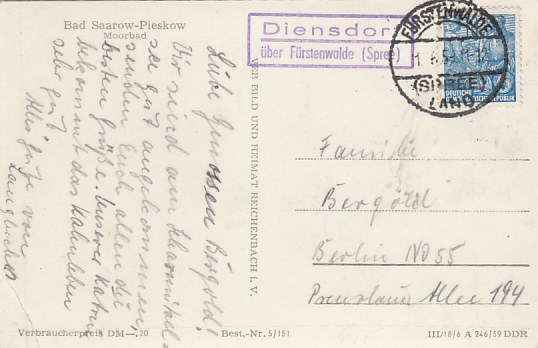 Bad Saarow-Pieskow
Moorbad
Liebe Genossen Bergold!
Wir sind am Scharmützel-
see gut angekommen,
senden Euch allen die
besten Grüße. Unserer Katrin
bekommt das Kahnleben
sehr gut.
Alles Gute von
VEB BILD UND HEIMAT REICHENBACH i. V.
Diensdorf
über Fürstenwalde (Spree)
FÜRSTENWALDE
(SPREE)
LAND
DEUTSCHE
Familie
Bergold
Berlin NO 55
Prenzlauer Allee 194
Verbraucherpreis DM —,20
Best.-Nr. 5/151
III/18/6 A 246/59 DDR